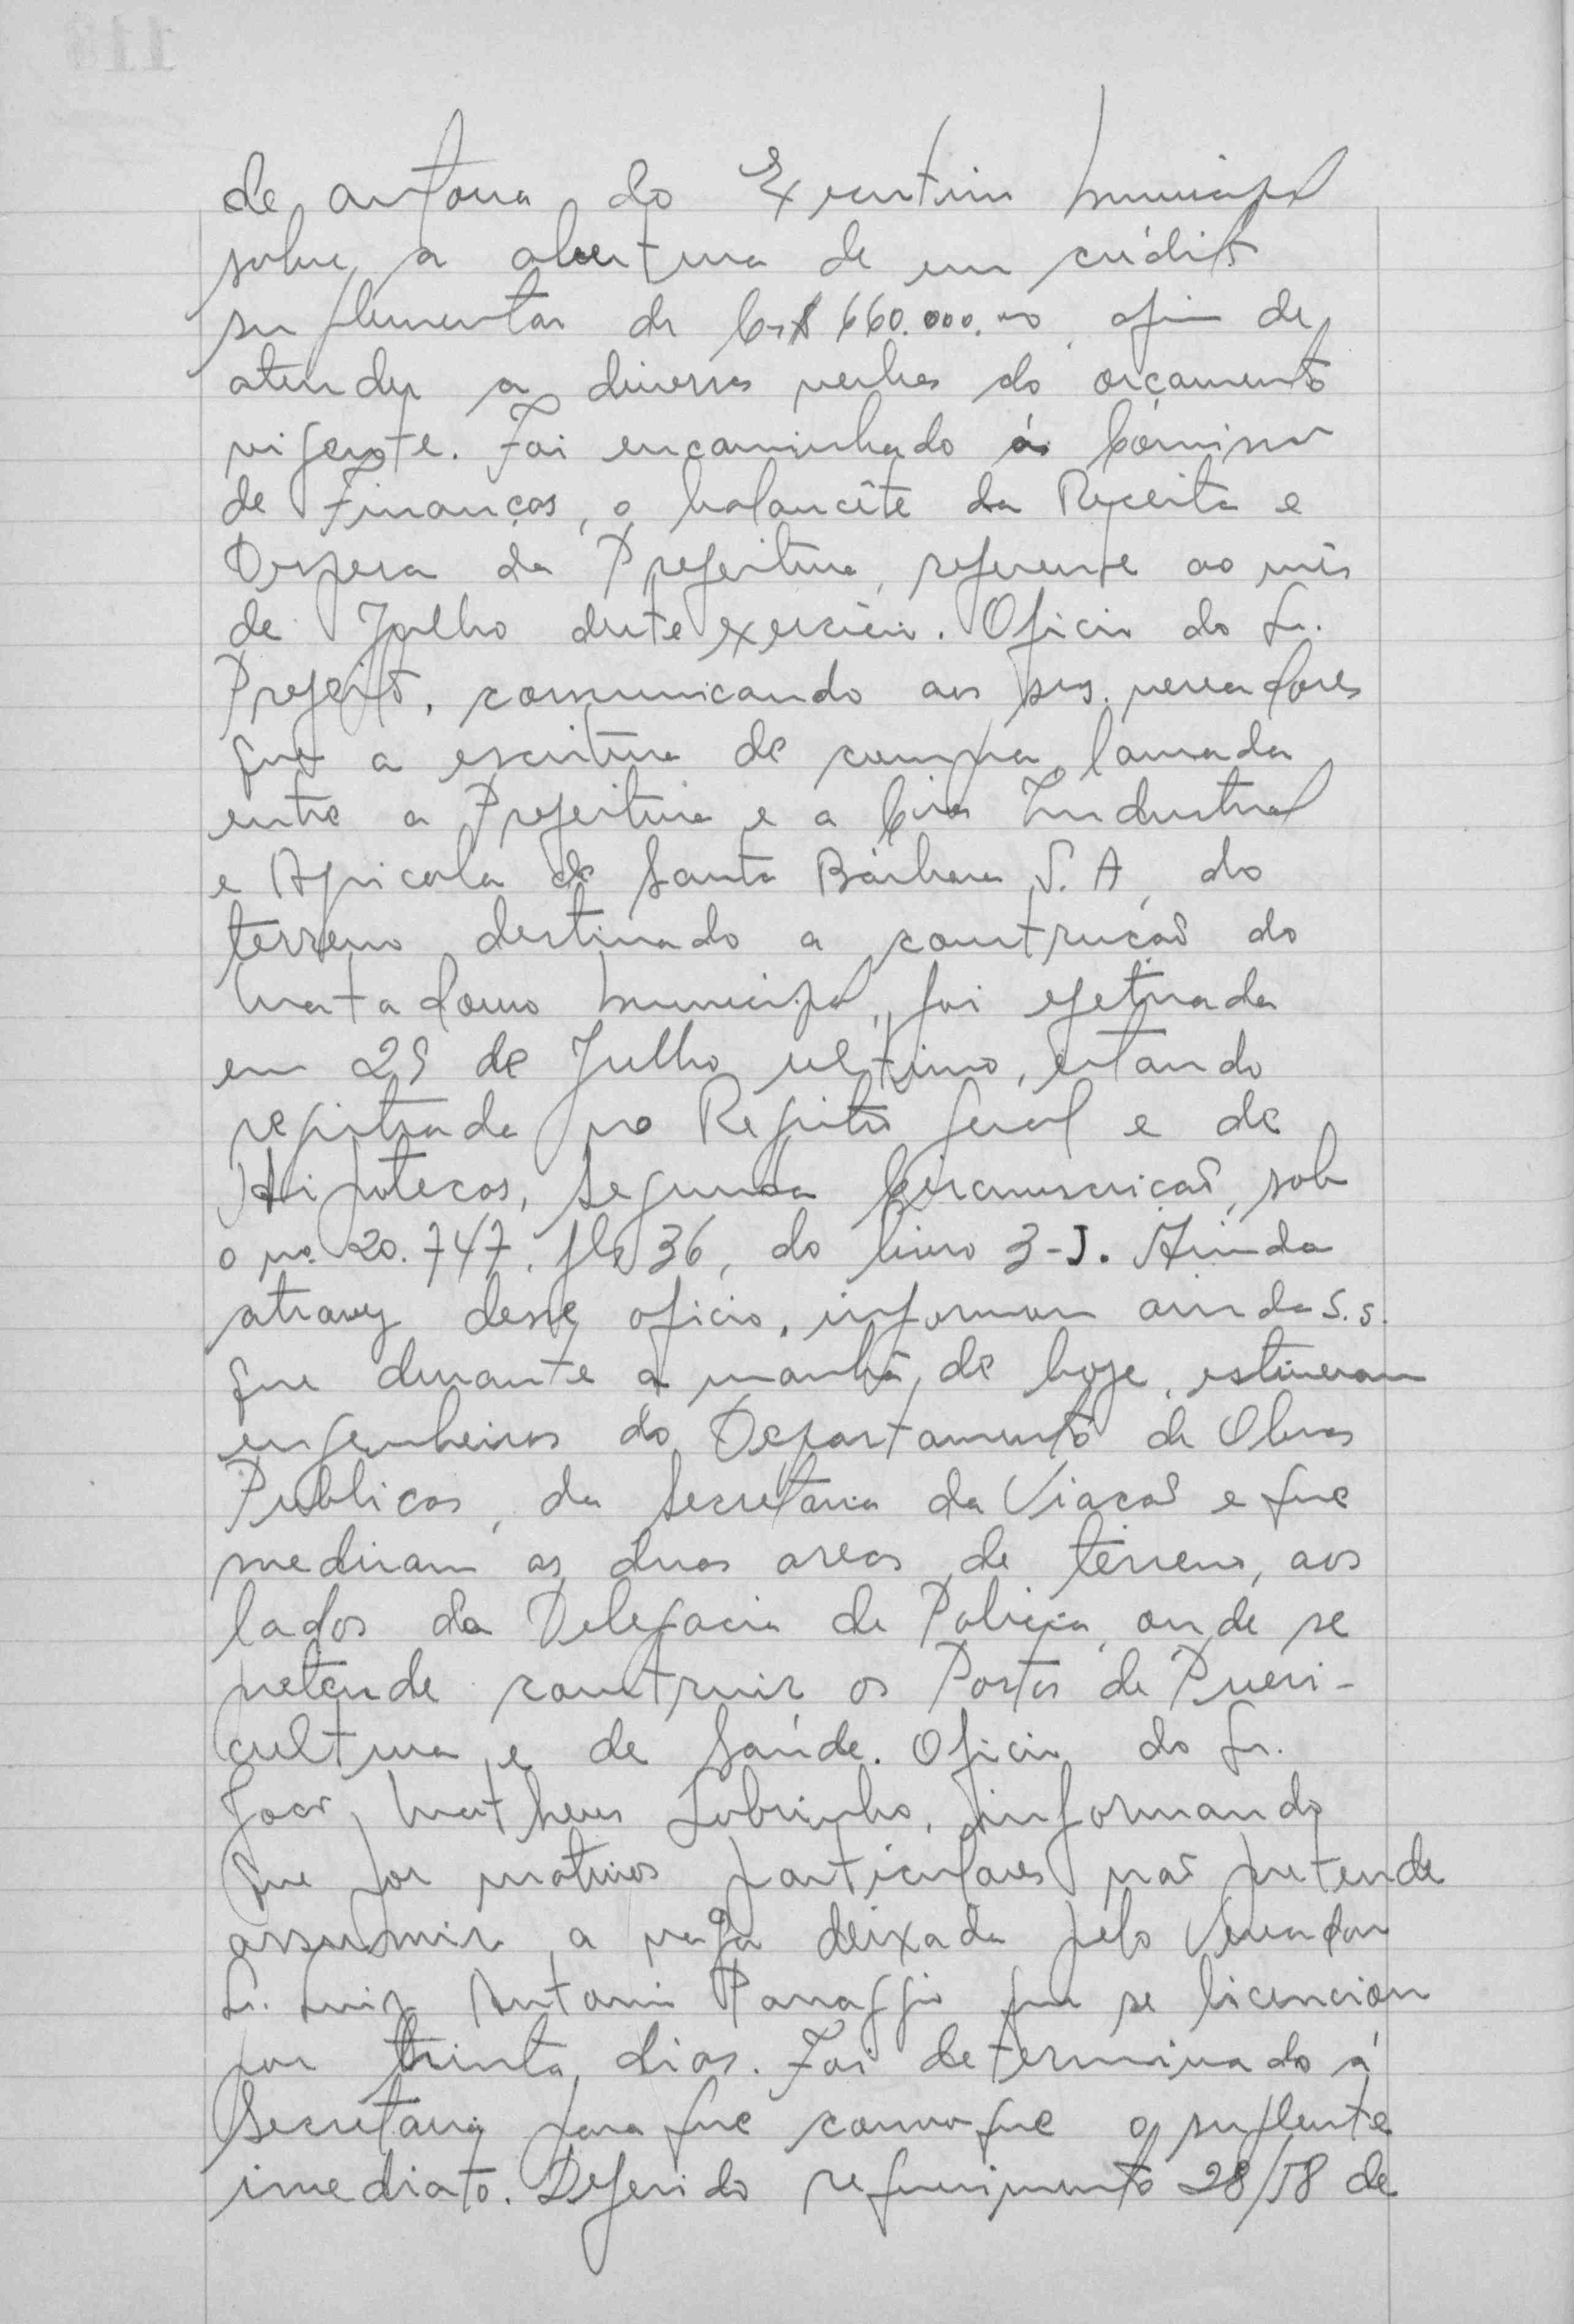 de autoria do Executivo Municipal
sobre a abertura de um crédito
suplementar de Cr$ 660.000,00, afim de
atender a diversas verbas do orçamento
vigente. Foi encaminhado á Comissão
de Finanças, o balancête da Receita e
Despesa da Prefeitura, referente ao mês
de Julho deste exercicio. Oficio do Sr.
Prefeito, comunicando aos srs. vereadores
que a escritura de compra, lavrada
entre a Prefeitura e a Cia Industrial
e Agricola de Santa Bárbara S.A, do
terreno destinado a construcão do
Matadouro Municipal, foi efetuada
em 29 de Julho ultimo, estando
registrada no Registro Geral e de
Hipotecas, Segunda Circunscricão, sob
o no. 20.747, fls 36, do livro 3-J. Ainda
atravez desse oficio, informou ainda S.S.
que durante a manhã de hoje, estiveram
engenheiros do Departamento de Obras
Publicas, da Secretaria da Viacão e que
mediram as duas areas de terreno, aos
lados da Delegacia de Policia, onde se
pretende construir os Postos de Pueri-
cultura e de Saúde. Oficio do Sr.
João Matheus Sobrinho, informando
que por motivos particulares não pretende
assumir a vaga deixada pelo Vereador
Sr. Luiz Antonio Panaggio que se licenciou
por trinta dias. Foi determinado á
Secretaria para que convoque o suplente
imediato. Deferido requerimento 28/58 de